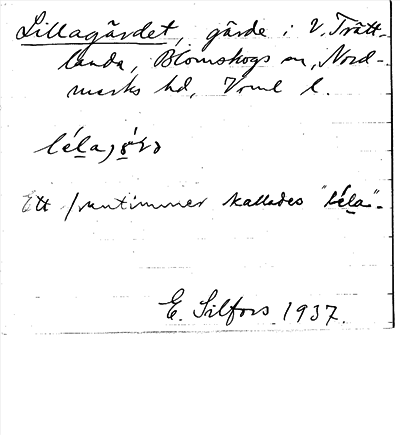 Lillagärdet, gärde i V. Trätt-
landa, Blomskogs sn, Nord-
marks hd, Vrml l.
Ett kallades "léla".
E. Silfors 1937.